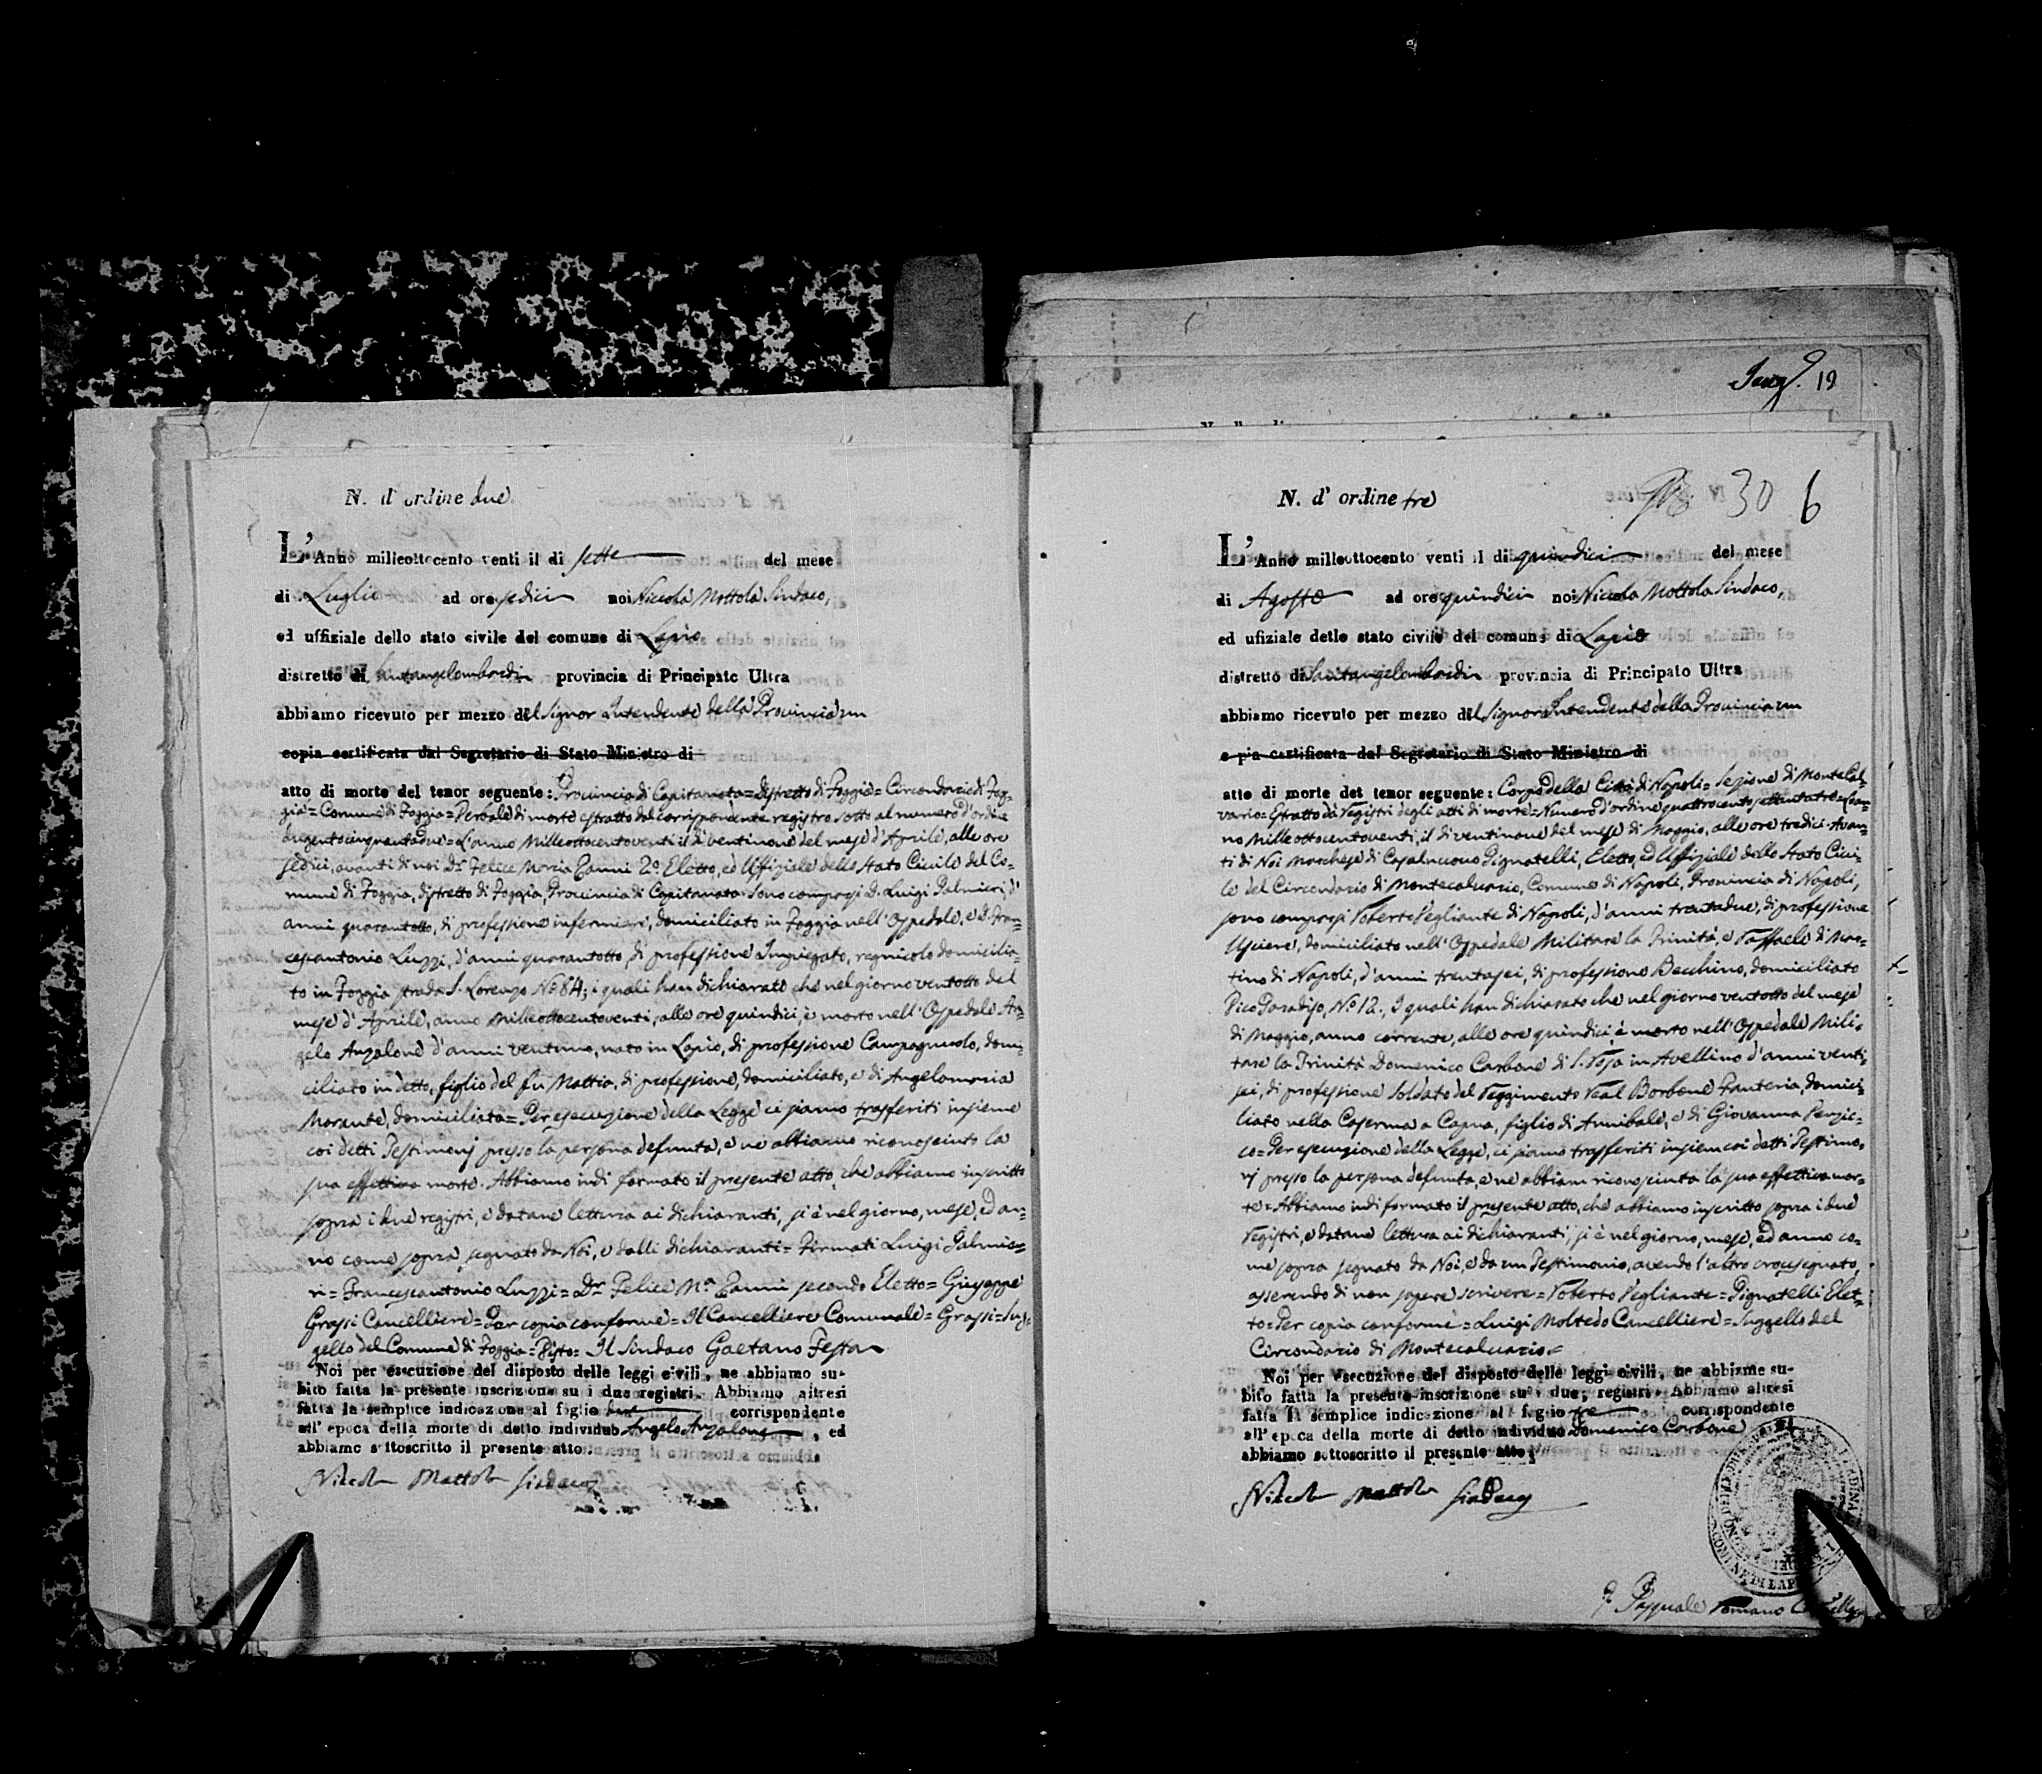 N. d' ordine due
L'Anno milleottocento venti il di sette del mese
di Luglio ad ore sedici noi Niccola Mottola Sindaco,
ed uffiziale dello stato civile del comune di Lapio
distretto di Santangelombardi provincia di Principato Ultra
abbiamo ricevuto per mezzo del Signor Intendente della Provincia un
copia certificata dal Segretario di Stato Ministro di
atto di morte del tenor seguente: Provincia di Capitanata = Distretto di Foggia = Circondario di Fog-
gia = Comune di Foggia = Verbale di morte estratto dal corrispondente registro sotto al numero d'ordine
dugentocinquantadue = L'anno Milleottocentoventi il dì ventinove del mese d'Aprile, alle ore
sedici, avanti di noi Dr. Felice Maria Zanni 2.° Eletto, ed Uffiziale dello Stato Civile del Co-
mune di Foggia, distretto di Foggia, Provincia di Capitanata sono comparsi D. Luigi Palmieri d'
anni quarantotto, di professione infermiere, domiciliato in Foggia nell'Ospedale, e D. Fran=
cescantonio Luzzi, d'anni quarantotto, di professione Impiegato, regnicolo domicilia=
to in Foggia strada S. Lorenzo N.° 84; i quali han dichiarato che nel giorno ventotto del
mese d'Aprile, anno Milleottocentoventi, alle ore quindici, è morto nell'Ospedale An=
gelo Anzalone d'anni ventuno, nato in Lapio, di professione Campagnuolo, domi=
ciliato in detto, figlio del fu Mattia, di professione, domiciliato, e di Angelamaria
Morante, domiciliata = Per esecuzione della Legge ci siamo trasferiti insieme
coi detti Testimonj presso la persona defunta, e ne abbiamo riconosciuto la
sua effettiva morte. Abbiamo indi formato il presente atto, che abbiamo inscritto
sopra i due registri, e datane lettura ai dichiaranti, si è nel giorno, mese, ed an=
no come sopra, segnato da Noi, e dalli dichiaranti = Firmati Luigi Palmie=
ri = Francescantonio Luzzi = Dr. Felice M.a Zanni secondo Eletto = Giuseppe
Grassi Cancelliere = Per copia conforme = Il Cancelliere Comunale = Grassi = Sug=
gello del Comune di Foggia = Visto = Il Sindaco Gaetano Festa
Noi per esecuzione del disposto delle leggi civili, ne abbiamo su-
bito fatta la presente inscrizione su i due registri. Abbiamo altresì
fatta la semplice indicazione al foglio due corrispondente
all'epoca della morte di detto individuo Angelo Anzalone, ed
abbiamo sottoscritto il presente atto.
Niccola Mottola Sindaco
19
N. d' ordine tre
30 6
L'Anno milleottocento venti il di quindici del mese
di Agosto ad ore quindici noi Niccola Mottola Sindaco,
ed ufiziale dello stato civile del comune di Lapio
distretto di Santangelombardi provincia di Principato Ultra
abbiamo ricevuto per mezzo del Signor Intendente della Provincia un
copia certificata dal Segretario di Stato Ministro di
atto di morte del tenor seguente: Corpo della Città di Napoli = Sezione di Monte Cal=
vario = Estratto da' Registri degli atti di morte = Numero d'ordine quattrocento settantatre = L'an=
no Milleottocentoventi, il dì ventinove del mese di Maggio, alle ore tredici. Avan=
ti di Noi Marchese di Casalnuovo Pignatelli, Eletto, ed Uffiziale dello Stato Civi=
le del Circondario di Montecalvario, Comune di Napoli, Provincia di Napoli,
sono comparsi Roberto Vegliante di Napoli, d'anni trentadue, di professione
Usciere, domiciliato nell'Ospedale Militare la Trinità, e Raffaele di Mar=
tino di Napoli, d'anni trentasei, di professione Becchino, domiciliato
Vico Paradiso, N.° 12., I quali han dichiarato che nel giorno ventotto del mese
di Maggio, anno corrente, alle ore quindici, è morto nell'Ospedale Mili=
tare la Trinità Domenico Carbone di S. in Avellino d'anni venti
sei, di professione Soldato del Reggimento Real Borbone Fanteria, domici=
liato nella Caserma a Capua, figlio di Annibale, e di Giovanna
co = Per esecuzione della Legge, ci siamo trasferiti insiem coi detti Testimo=
nj presso la persona defunta, e ne abbiam riconosciuta la sua effettiva mor=
te = Abbiamo indi formato il presente atto, che abbiamo inscritto sopra i due
Registri, e datane lettura ai dichiaranti, si è nel giorno, mese, ed anno co=
me sopra segnato da Noi, e da un Testimonio, avendo l'altro crocesegnato,
asserendo di non sapere scrivere = Roberto Vegliante = Pignatelli Elet=
to = Per copia conforme = Luigi Moltedo Cancelliere = Suggello del
Circondario di Montecalvario =
Noi per esecuzione del disposto delle leggi civili, ne abbiamo su-
bito fatta la presente inscrizione su i due registri. Abbiamo altresì
fatta la semplice indicazione al foglio tre corrispondente
all'epoca della morte di detto individuo Domenico Carbone, ed
abbiamo sottoscritto il presente atto.
Niccola Mottola Sindaco
Pasquale Romano